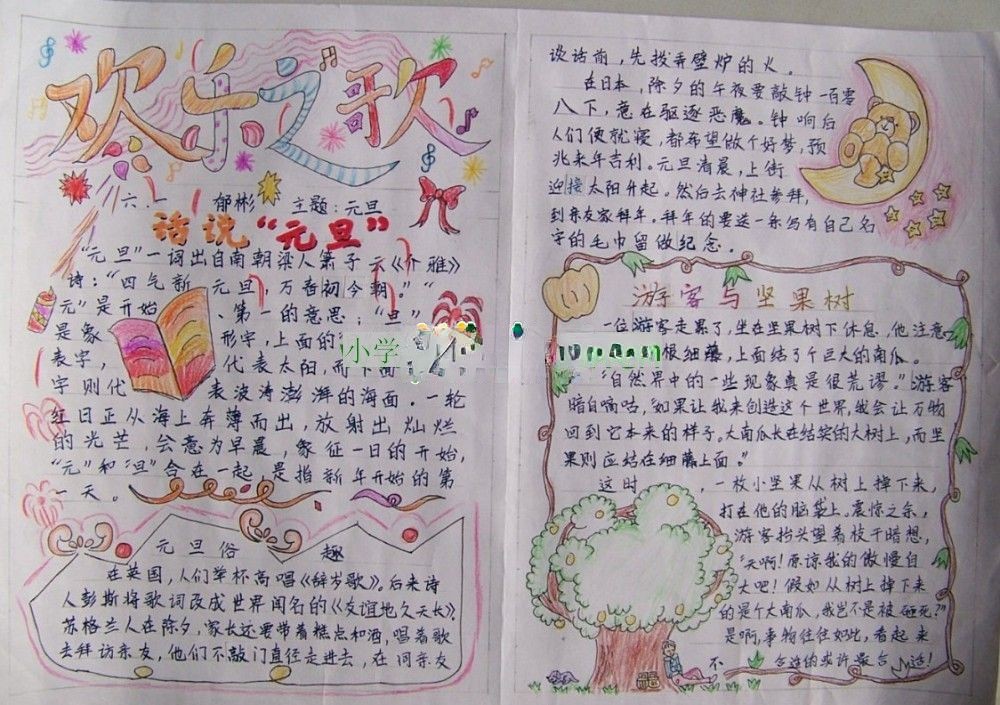 欢乐之歌
六.一 郁彬 主题:元旦
话说“元旦”
“元旦”一词出自南朝梁人萧子云《介雅》
诗:“四气新元旦,万寿初今朝。”“
元”是开始、第一的意思;“旦”
是象形字,上面的
表字,代表太阳,而下面
字则代表波涛澎湃的海面。一轮
红日正从海上奔薄而出,放射出灿烂
的光芒,会意为早晨,象征一日的开始,
“元”和“旦”合在一起,是指新年开始的第
一天。
元旦俗趣
在英国,人们举杯高唱《辞岁歌》。后来诗
人彭斯将歌词改成世界闻名的《友谊地久天长》.
苏格兰人在除夕,家长还要带着糕点和酒,唱着歌
去拜访亲友,他们不敲门直径走进去,在同亲友
谈话前,先拨弄壁炉的火。
在日本,除夕的午夜要敲钟一百零
八下,意在驱逐恶魔。钟响后
人们便就寝,都希望做个好梦,预
兆来年吉利。元旦清晨,上街
迎接太阳升起。然后去神社参拜,
到亲友家拜年。拜年的要送一条写有自己名
字的毛巾留做纪念。
游客与坚果树
一位游客走累了,坐在坚果树下休息,他注意
根细藤,上面结了个巨大的南瓜。
“自然界中的一些现象真是很荒谬。”游客
暗自嘀咕,“如果让我来创造这个世界,我会让万物
回到它本来的样子。大南瓜长在结实的大树上,而坚
果则应结在细藤上面。”
这时,一枚小坚果从树上掉下来,
打在他的脑袋上。震惊之余,
游客抬头望着枝干暗想,
“天啊!原谅我的傲慢自
大吧!假如从树上掉下来
的是个大南瓜,我岂不是被砸死?”
是啊,事物往往如此,看起来
不合适的或许最合适!
小学